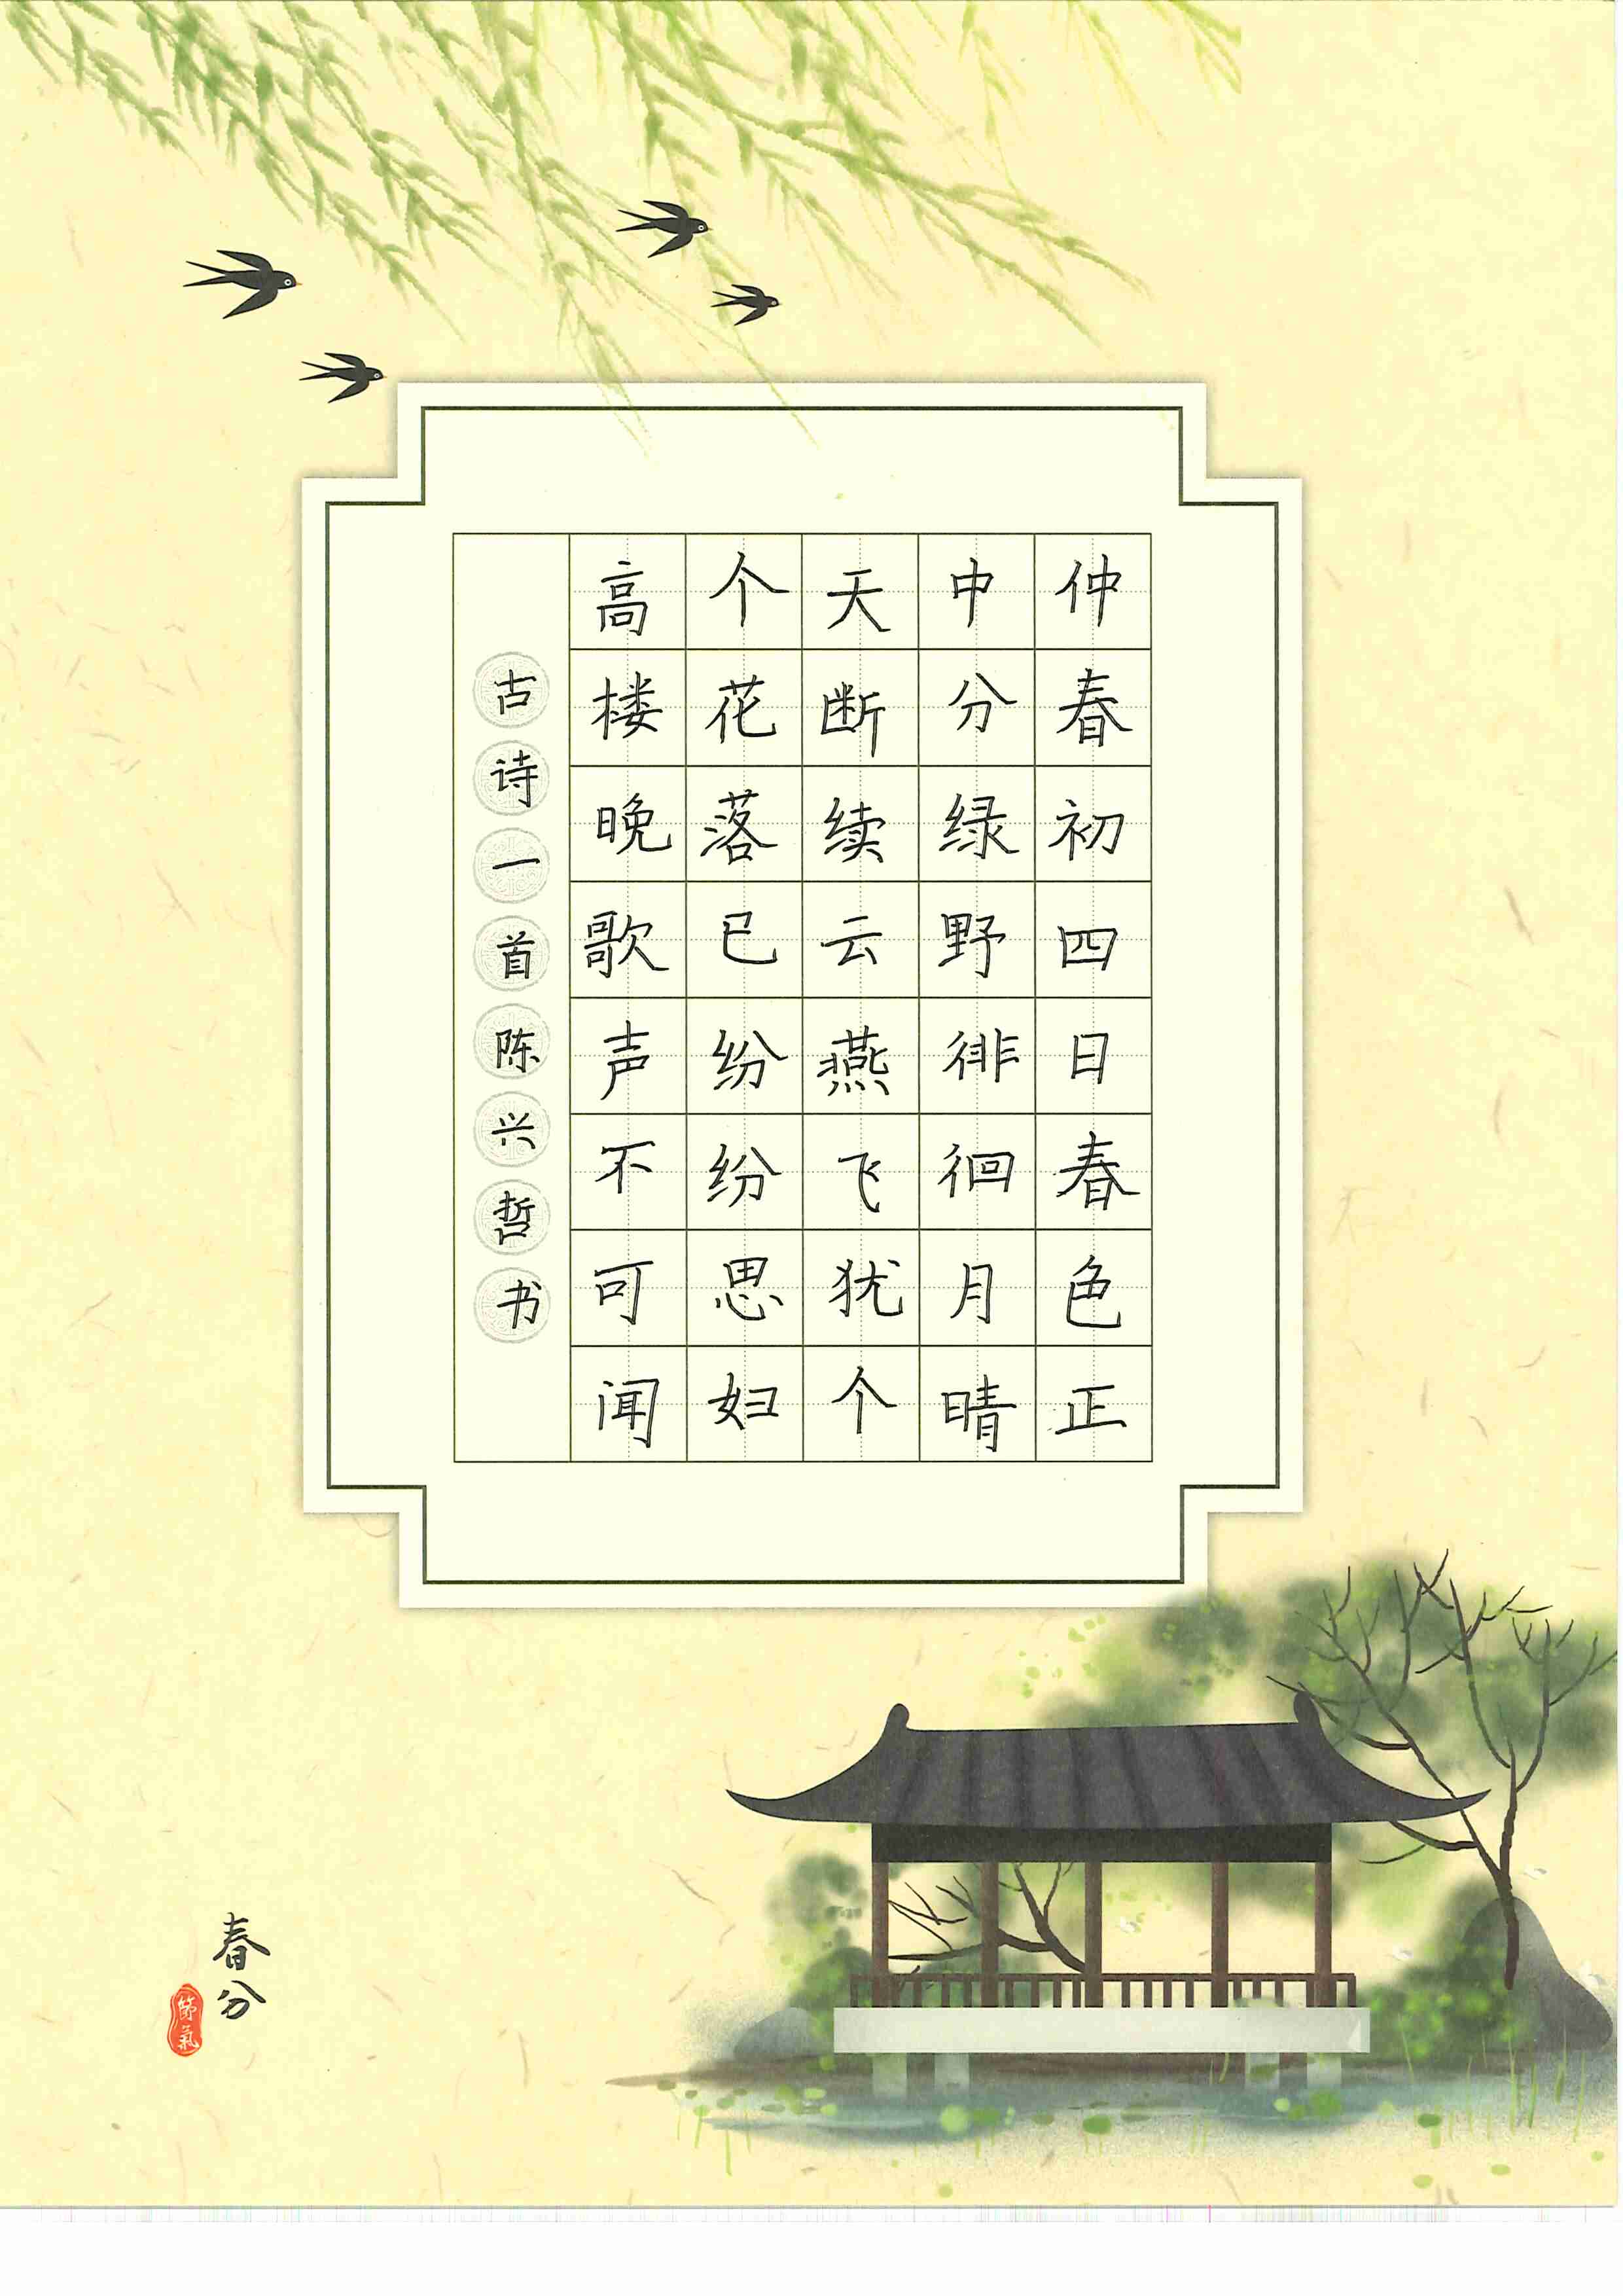 仲春初四日春色正
中分绿野徘徊月晴
天断续云燕飞犹个
个花落已纷纷思妇
高楼晚歌声不可闻
古诗一首陈兴哲书
春分
節氣